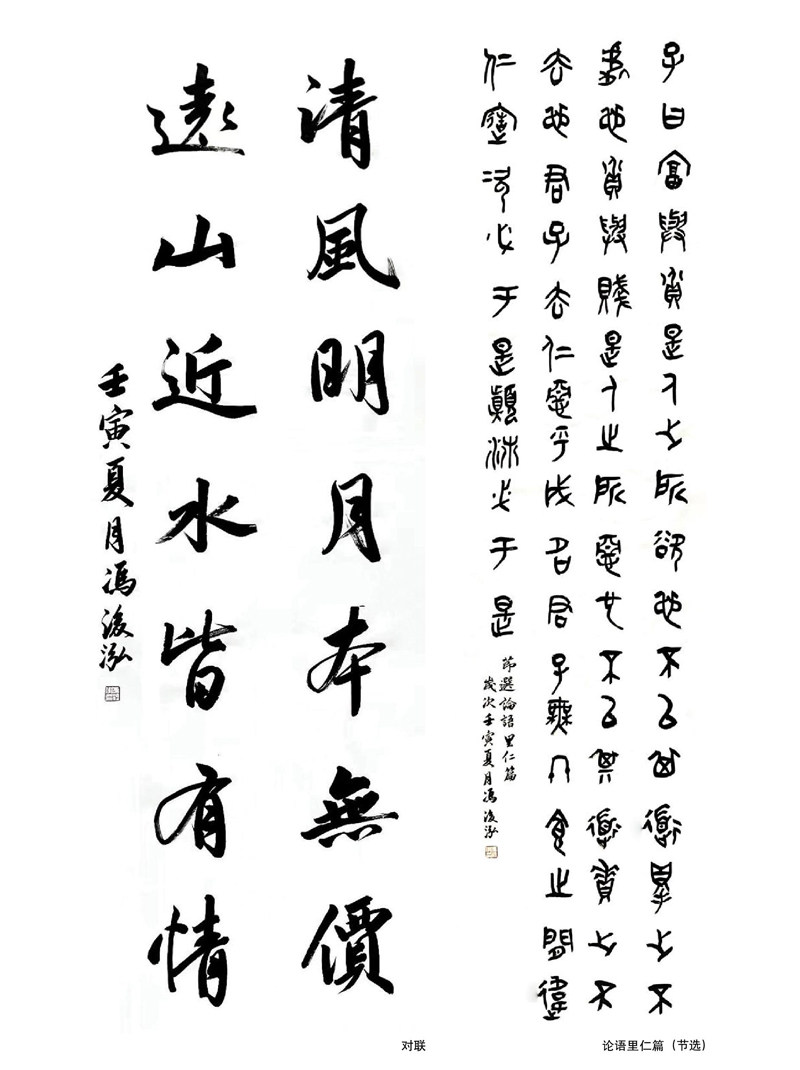 子曰富與貴是人之所欲也不以其道得之不
處也貧與賤是人之所惡也不以其道得之不
去也君子去仁惡乎成名君子無終食之間違
仁造次必于是顛沛必于是
節選論語里仁篇
歲次壬寅夏月馮浚泓
清風明月本無價
遠山近水皆有情
壬寅夏月馮浚泓
对联
论语里仁篇（节选）